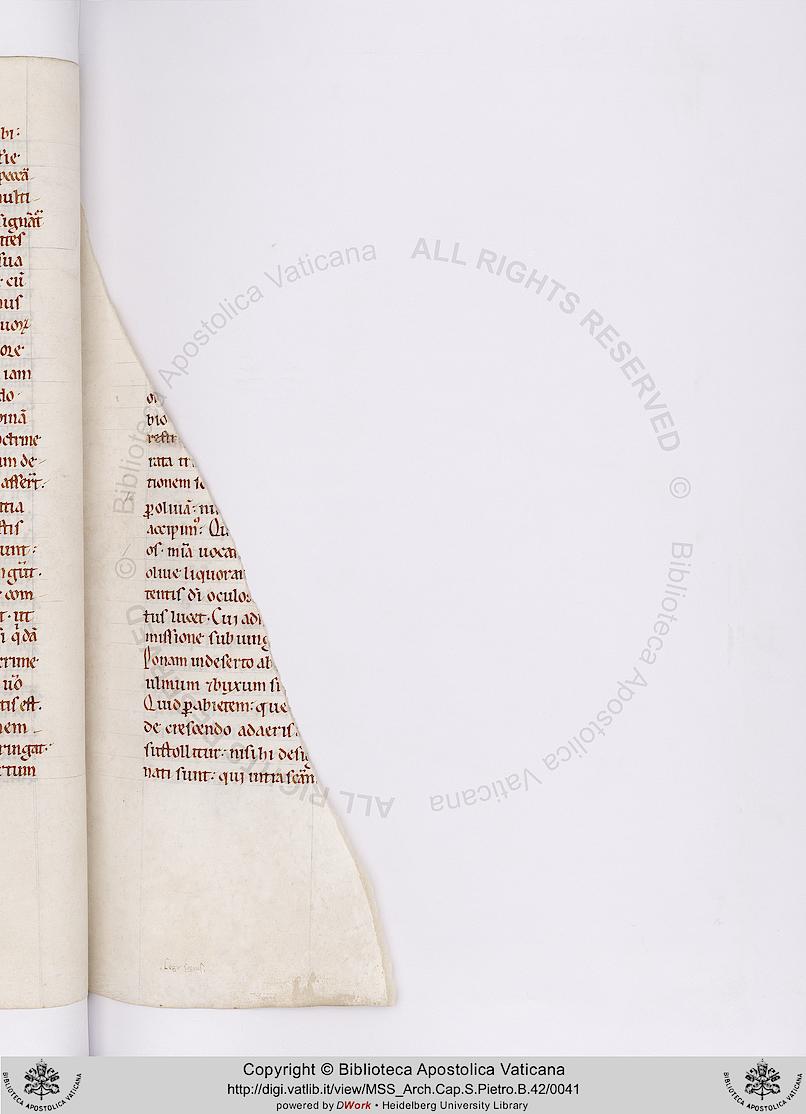 bi:
tie
peccã
multi
signãt
ttes
sua
cũ
nus
uoꝝ
ore
iam
do
minã
octrine
um de
asserit.
ttia
stis
sunt:
ngũt.
com
t. ut
si q̇dã
ctrine
uo
tis est.
nem
ringat.
rtum
bio
rata
tionem
ꝑ oliuã: ni
accipim᷒. Qu
os. mĩa uocat
oliue liquorar
tentis dĩ oculos
tus lucet. Cui adi
missione sub iung
Ponam in deserto ab
ulmum ⁊ buxum si
Quid ꝑ abietem: que
de crescendo ad aeris
sustollitur. nisi hi desig
nati sunt: qui intra scãm
ALL RIGHTS RESERVED
© Biblioteca Apostolica Vaticana
ALL RIGHTS RESERVED
© Biblioteca Apostolica Vaticana
Copyright © Biblioteca Apostolica Vaticana
http://digi.vatlib.it/view/MSS_Arch.Cap.S.Pietro.B.42/0041
powered by DWork • Heidelberg University Library
BIBLIOTECA APOSTOLICA VATICANA
BIBLIOTECA APOSTOLICA VATICANA